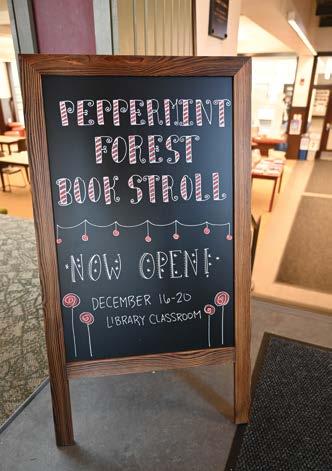 PEPPERMINT
FOREST
BOOK STROLL
·NOW OPEN!·
DECEMBER 16-20
LIBRARY CLASSROOM